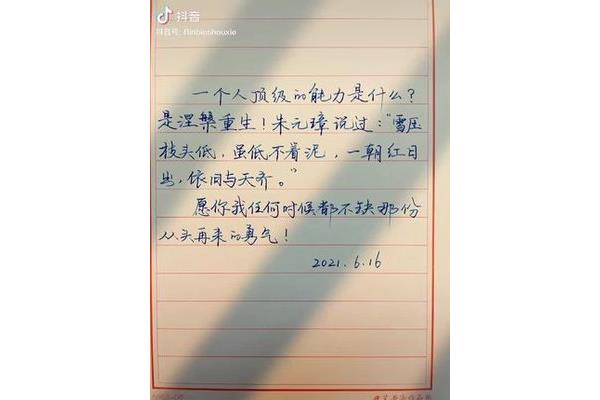 抖音
一个人顶级的能力是什么?
是涅槃重生!朱元璋说过:“雪压
枝头低,虽低不着泥,一朝红日
出,依旧与天齐。”
愿你我任何时候都不缺那份
从头再来的勇气!
2021.6.16